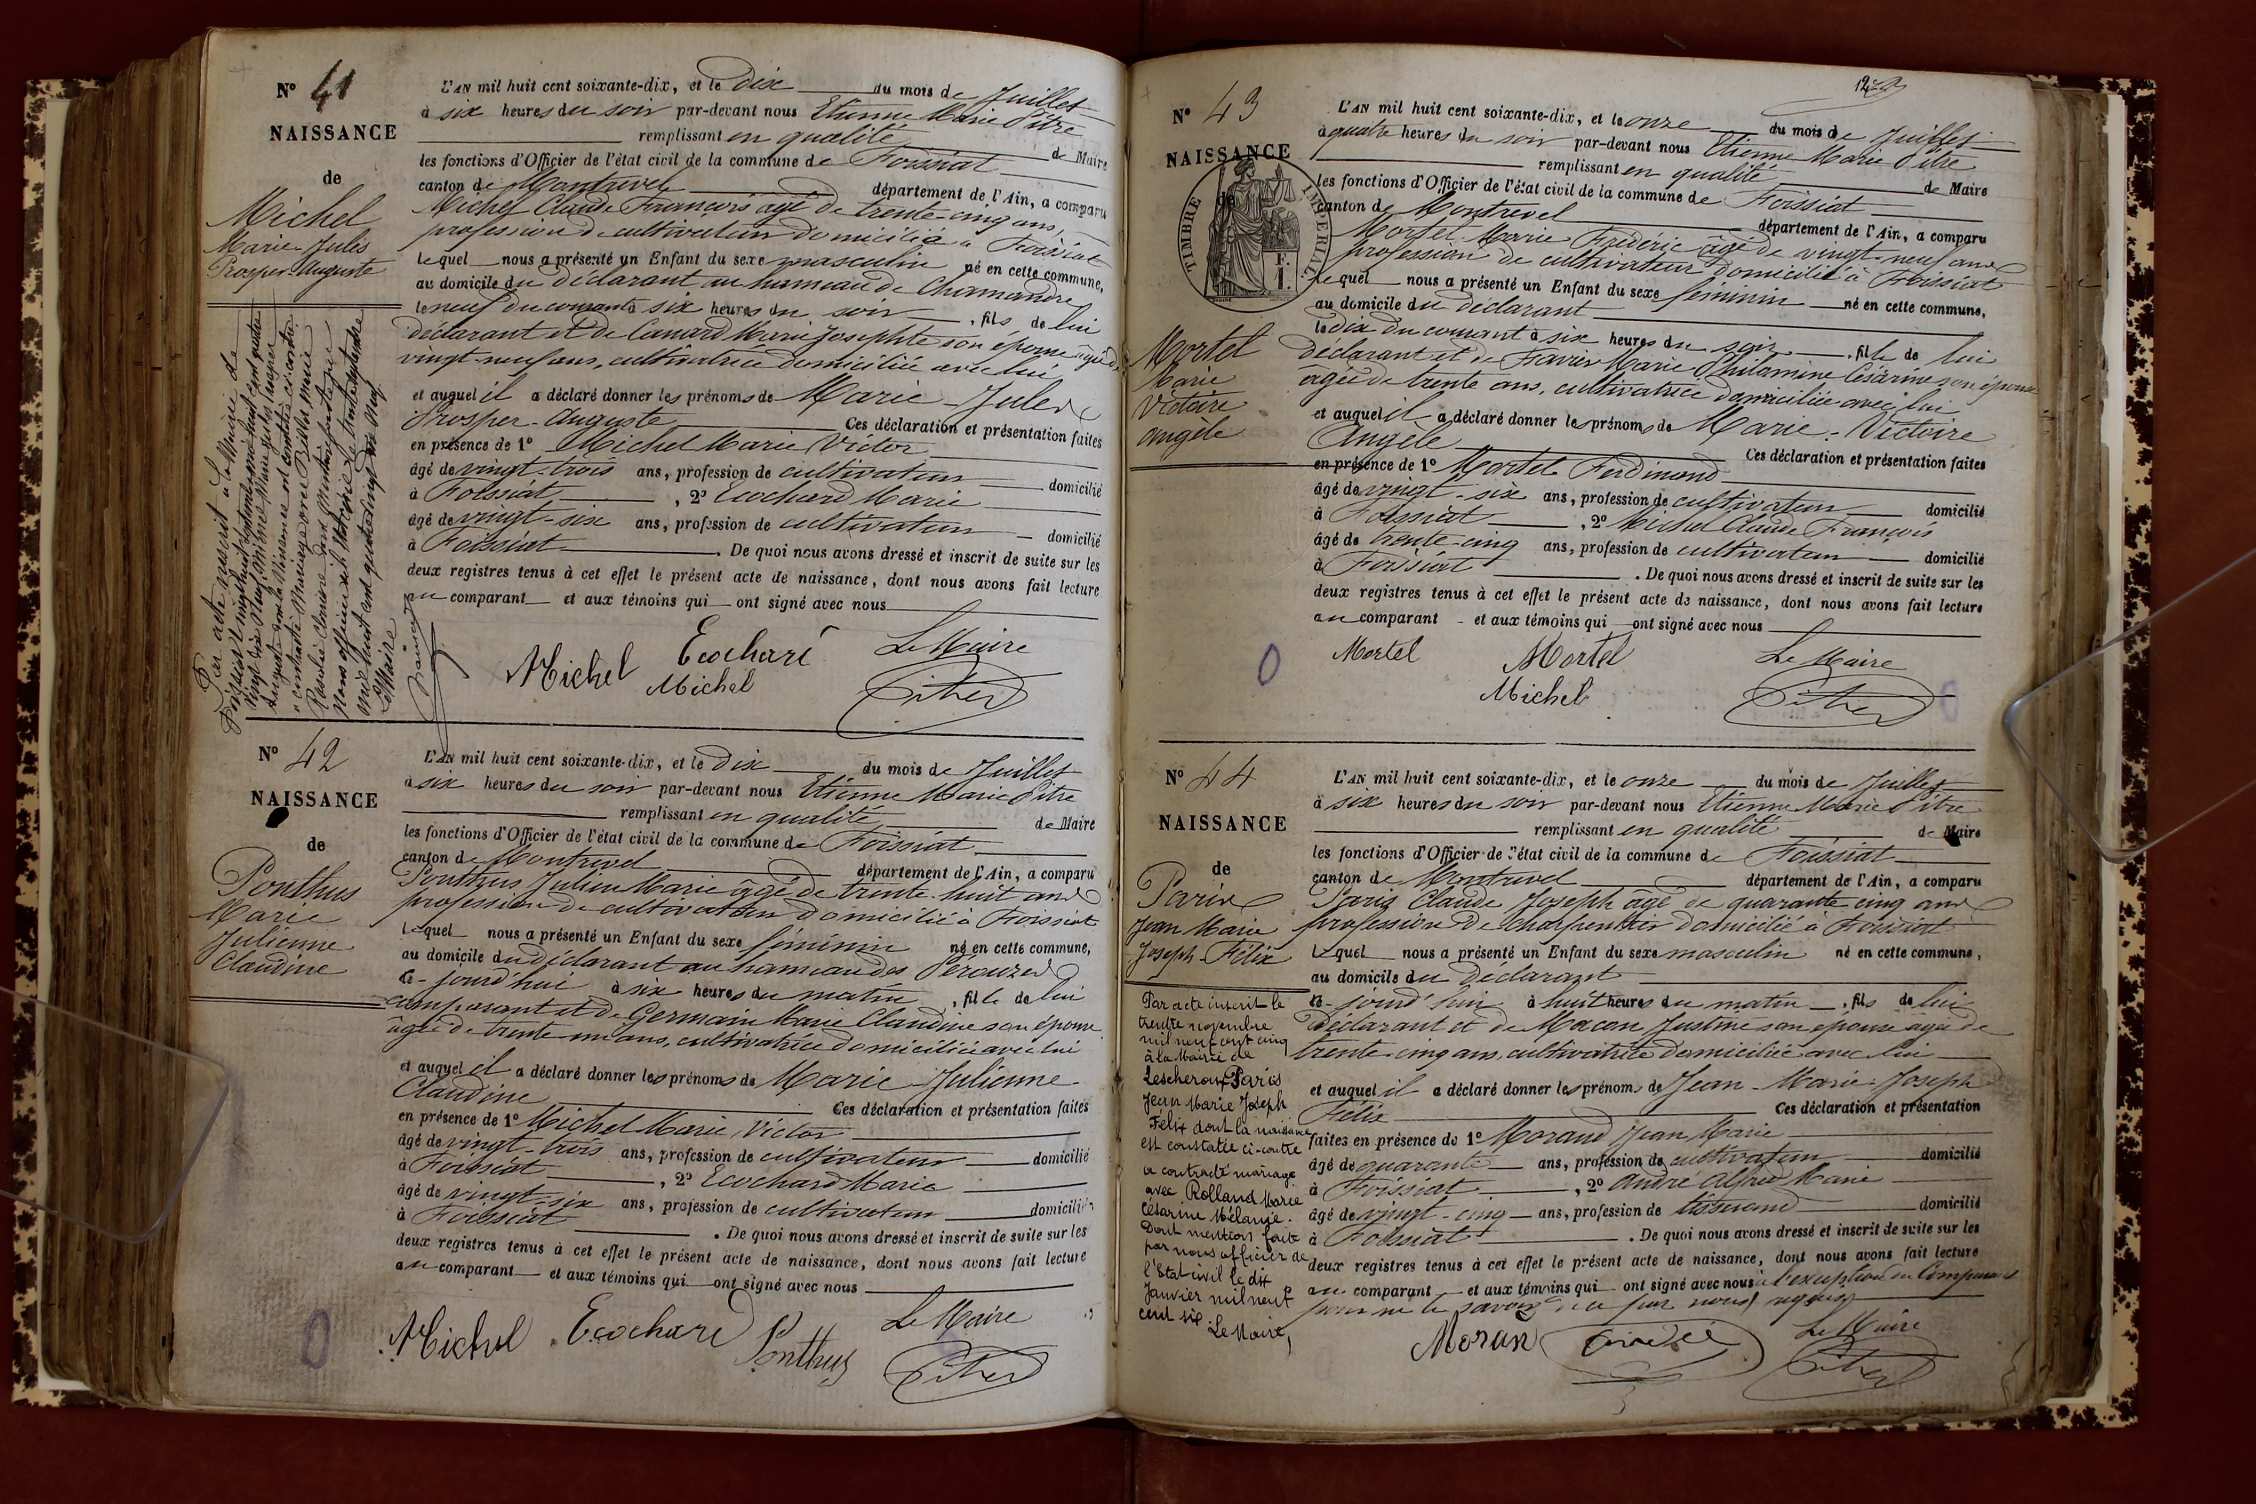 N° 41
NAISSANCE
de
Michel
Marie-Jules
Prosper-Auguste
L'AN mil huit cent soixante-dix, et le Dix du mois de Juillet
à six heures du soir par-devant nous Etienne Marie Pitre
remplissant en qualité de Maire
les fonctions d'Officier de l'état civil de la commune de Foissiat
canton de Montrevel département de l'Ain, a comparu
Michel Claude François âgé de trente-cinq ans,
profession de cultivateur domicilié à Foissiat
lequel nous a présenté un Enfant du sexe masculin né en cette commune,
au domicile du déclarant au hameau de Chamandre
le neuf du courant à six heures du soir, fils de lui
déclarant et de Canard Marie Josephte son épouse âgée de
vingt-neuf ans, cultivatrice domiciliée avec lui
et auquel il a déclaré donner les prénoms de Marie-Jules
Prosper-Auguste Ces déclaration et présentation faites
en présence de 1° Michel Marie Victor
âgé de vingt-trois ans, profession de cultivateur domicilié
à Foissiat, 2° Ecochard Marie
âgé de vingt-six ans, profession de cultivateur domicilié
à Foissiat. De quoi nous avons dressé et inscrit de suite sur les
deux registres tenus à cet effet le présent acte de naissance, dont nous avons fait lecture
au comparant et aux témoins qui ont signé avec nous
Michel Ecochard Le Maire
Michel Pitre
Par acte inscrit à la Mairie de
Foissiat le vingt huit septembre mil huit cent quatre
vingt dix Neuf, Michel Marie Jules Prosper
Auguste dont la Naissance est constatée ci-contre
a contracté Mariage avec
dont Mention faite par
Nous officier de l'état civil le trente septembre
mil huit cent quatre vingt dix Neuf
Le Maire
N° 42
NAISSANCE
de
Ponthus
Marie
Julienne
Claudine
L'AN mil huit cent soixante-dix, et le Dix du mois de Juillet
à six heures du soir par-devant nous Etienne Marie Pitre
remplissant en qualité de Maire
les fonctions d'Officier de l'état civil de la commune de Foissiat
canton de Montrevel département de l'Ain, a comparu
Ponthus Julien Marie âgé de trente-huit ans
profession de cultivateur domicilié à Foissiat
lequel nous a présenté un Enfant du sexe féminin né en cette commune,
au domicile du déclarant au hameau des Pérouzes
ce-jourd'hui à six heures du matin, fille de lui
comparant et de Germain Marie Claudine son épouse
âgée de trente un ans, cultivatrice domiciliée avec lui
et auquel il a déclaré donner les prénoms de Marie-Julienne
Claudine Ces déclaration et présentation faites
en présence de 1° Michel Marie Victor
âgé de vingt-trois ans, profession de cultivateur domicilié
à Foissiat, 2° Ecochard Marie
âgé de vingt-six ans, profession de cultivateur domicilié
à Foissiat. De quoi nous avons dressé et inscrit de suite sur les
deux registres tenus à cet effet le présent acte de naissance, dont nous avons fait lecture
au comparant et aux témoins qui ont signé avec nous
Michel Ecochard Ponthus Le Maire
Pitre
N° 43
NAISSANCE
de
TIMBRE IMPÉRIAL
F.
1.
Mortel
Marie
Victoire
Angèle
L'AN mil huit cent soixante-dix, et le onze du mois de Juillet
à quatre heures du soir par-devant nous Etienne Marie Pitre
remplissant en qualité de Maire
les fonctions d'Officier de l'état civil de la commune de Foissiat
canton de Montrevel département de l'Ain, a comparu
Mortel Marie Frédéric âgé de vingt-neuf ans
profession de cultivateur domicilié à Foissiat
lequel nous a présenté un Enfant du sexe féminin né en cette commune,
au domicile du déclarant
le dix du courant à six heures du soir, fille de lui
déclarant et de Favier Marie Philomine Césarine son épouse
âgée de trente ans, cultivatrice domiciliée avec lui
et auquel il a déclaré donner les prénoms de Marie-Victoire
Angèle Ces déclaration et présentation faites
en présence de 1° Mortel Ferdinand
âgé de vingt-six ans, profession de cultivateur domicilié
à Foissiat, 2° Michel Claude François
âgé de trente-cinq ans, profession de cultivateur domicilié
à Foissiat. De quoi nous avons dressé et inscrit de suite sur les
deux registres tenus à cet effet le présent acte de naissance, dont nous avons fait lecture
au comparant et aux témoins qui ont signé avec nous
Mortel Mortel Le Maire
Michel Pitre
N° 44
NAISSANCE
de
Paris
Jean Marie
Joseph-Félix
Par acte inscrit le
trente novembre
mil neuf cent cinq
à la Mairie de
Lescheroux Paris
Jean Marie Joseph
Félix dont la naissance
est constatée ci-contre
a contracté mariage
avec Rolland Marie
Césarine Mélanie.
Dont mention faite
par nous officier de
l'Etat civil le dix
Janvier mil neuf
cent six.
Le Maire,
L'AN mil huit cent soixante-dix, et le onze du mois de Juillet
à six heures du soir par-devant nous Etienne Marie Pitre
remplissant en qualité de Maire
les fonctions d'Officier de l'état civil de la commune de Foissiat
canton de Montrevel département de l'Ain, a comparu
Paris Claude Joseph âgé de quarante-cinq ans
profession de charpentier domicilié à Foissiat
lequel nous a présenté un Enfant du sexe masculin né en cette commune,
au domicile du déclarant
ce-jourd'hui à huit heures du matin, fils de lui
déclarant et de Macon Justine son épouse âgée de
trente-cinq ans, cultivatrice domiciliée avec lui
et auquel il a déclaré donner les prénoms de Jean-Marie-Joseph
Félix Ces déclaration et présentation
faites en présence de 1° Morand Jean Marie
âgé de quarante ans, profession de cultivateur domicilié
à Foissiat, 2° André Alfred Marie
âgé de vingt-cinq ans, profession de tisserand domicilié
à Foissiat. De quoi nous avons dressé et inscrit de suite sur les
deux registres tenus à cet effet le présent acte de naissance, dont nous avons fait lecture
au comparant et aux témoins qui ont signé avec nous à l'exception du Comparant
pour ne le savoir de ce par nous requis
Moran André Le Maire
Pitre